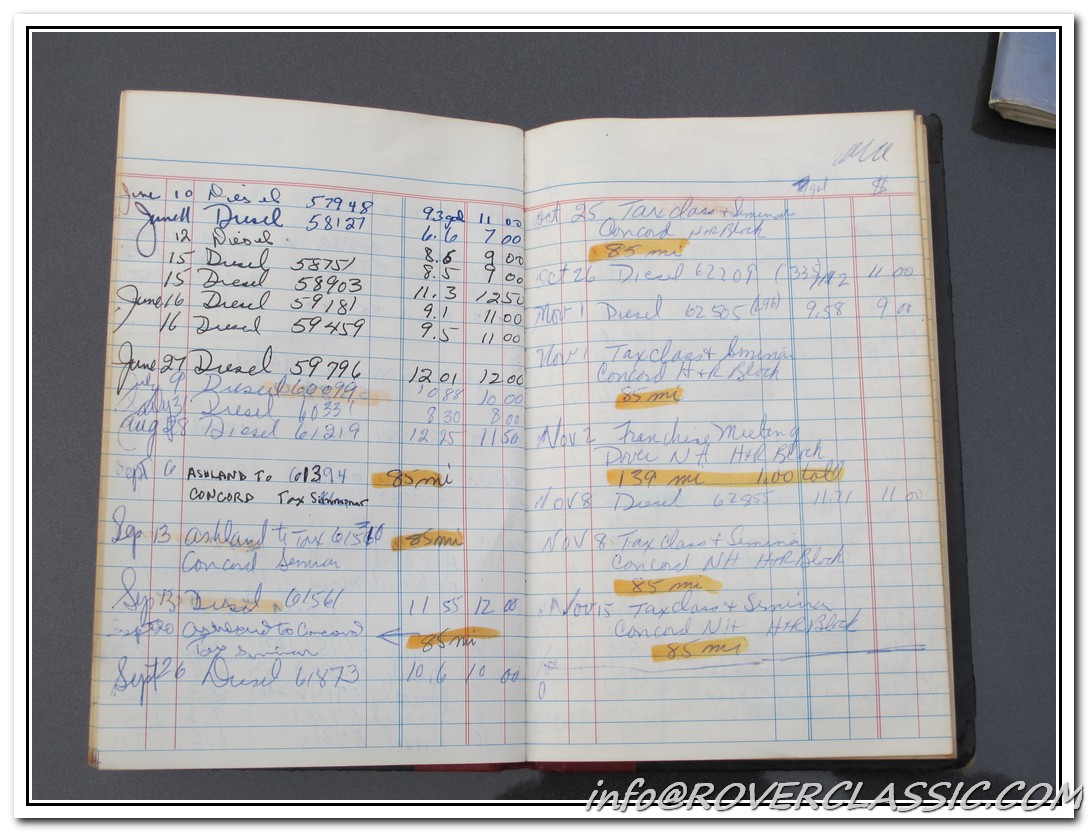 June 10 Diesel 57948 9.3 gal 11 00
June 11 Diesel 58127 6.6 7 00
12 Diesel 8.6 9 00
15 Diesel 58751 8.5 9 00
15 Diesel 58903 11.3 12 50
June 16 Diesel 59181 9.1 11 00
16 Diesel 59459 9.5 11 00
June 27 Diesel 59796 12 01 12 00
July 9 Diesel 60099 10 88 10 00
July 31 Diesel 8 30 8 00
Aug Diesel 61219 12 25 11 50
Sept 6 ASHLAND TO 61394 85 mi
CONCORD Tax
Sep 13 Ashland to Tax 85 mi
Concord Seminar
Sep 13 Diesel 61561 11 55 12 00
Sept 20 Ashland to Concord 85 mi
Tax Seminar
Sept 26 Diesel 61873 10.6 10 00
gal $
Oct 25 Tax class + Seminar
Concord H+R Block
85 mi
Oct 26 Diesel 62209 11 00
Nov 1 Diesel 62505 (296) 9.58 9 00
Nov 1 Tax class + Seminar
Concord H+R Block
85 mi
Nov 2 Franchise Meeting
Dover NH H+R Block
139 mi 1.00 toll
Nov 8 Diesel 62855 11.71 11 00
Nov 8 Tax Class + Seminar
Concord NH H+R Block
85 mi
Nov 15 Tax Class + Seminar
Concord NH H+R Block
85 mi
info@ROVERCLASSIC.COM